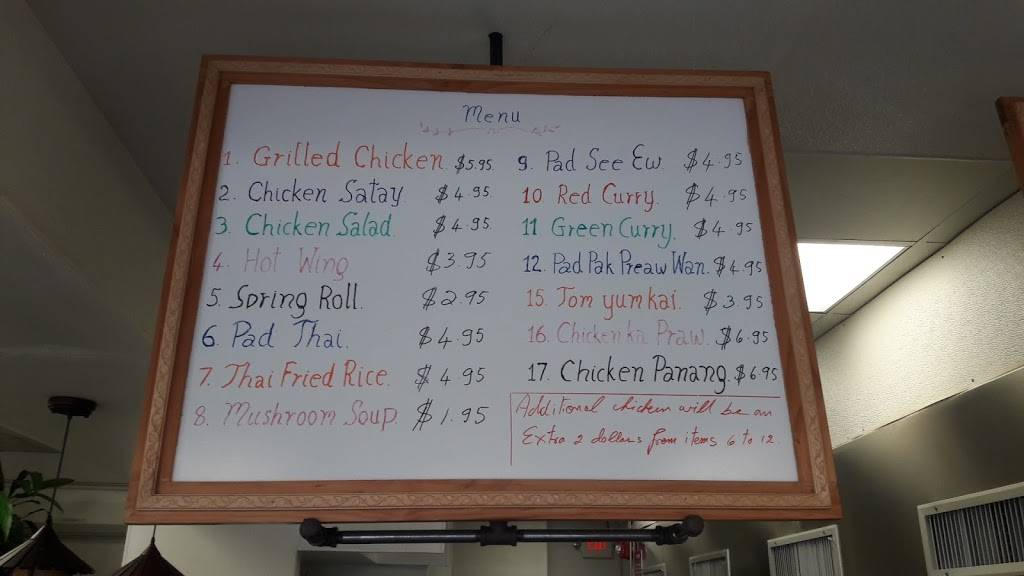 Menu
1. Grilled Chicken $5.95
2. Chicken Satay $4.95.
3. Chicken Salad. $4.95.
4. Hot Wing $3.95
5. Spring Roll. $2.95
6. Pad Thai. $4.95
7. Thai Fried Rice. $4.95
8. Mushroom Soup. $1.95
9. Pad See Ew. $4.95
10. Red Curry. $4.95
11 Green Curry. $4.95
12. Pad Pak Preaw Wan. $4.95
15. Tom yum kai. $3.95
16. Chicken ka Praw. $6.95
17. Chicken Panang. $6.95
Additional chicken will be an
Extra 2 dollars from items 6 to 12.